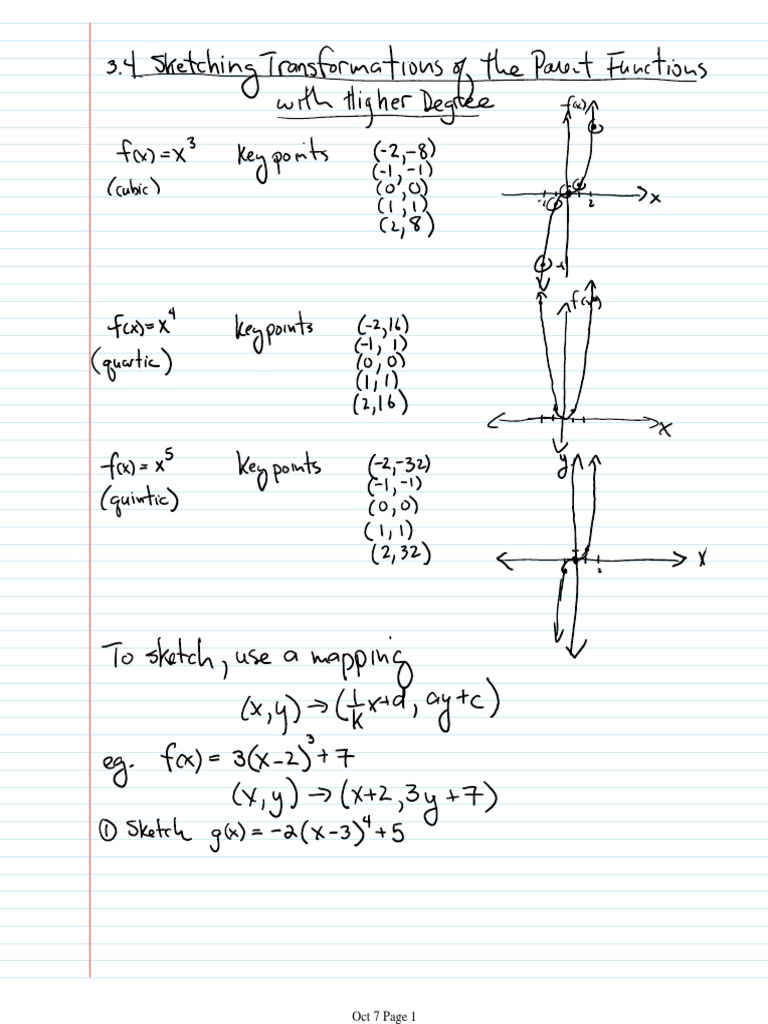 3.4 Sketching Transformations of the Parent Functions
with Higher Degree
f(x)
f(x) = x³ Key points (-2, -8)
(cubic) (-1, -1)
(0, 0)
(1, 1)
(2, 8)
-1 2 x
-8
f(x) = x⁴ Key points (-2, 16)
(quartic) (-1, 1)
(0, 0)
(1, 1)
(2, 16)
f(x)
x
f(x) = x⁵ Key points (-2, -32)
(quintic) (-1, -1)
(0, 0)
(1, 1)
(2, 32)
y
x
2
To sketch, use a mapping
(x, y) → (1/k x+d, ay+c)
eg. f(x) = 3(x-2)³ + 7
(x, y) → (x+2, 3y+7)
① Sketch g(x) = -2(x-3)⁴ + 5
Oct 7 Page 1